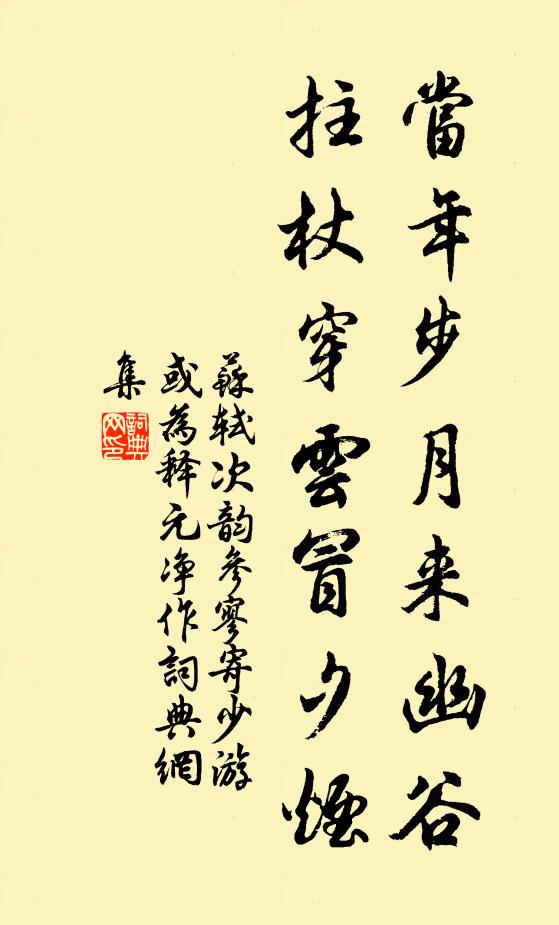 當年步月来幽谷
拄杖穿雲冒夕煙
蘇軾次韵參寥寄少游
或為释元净作詞典網
集
詞典
网印